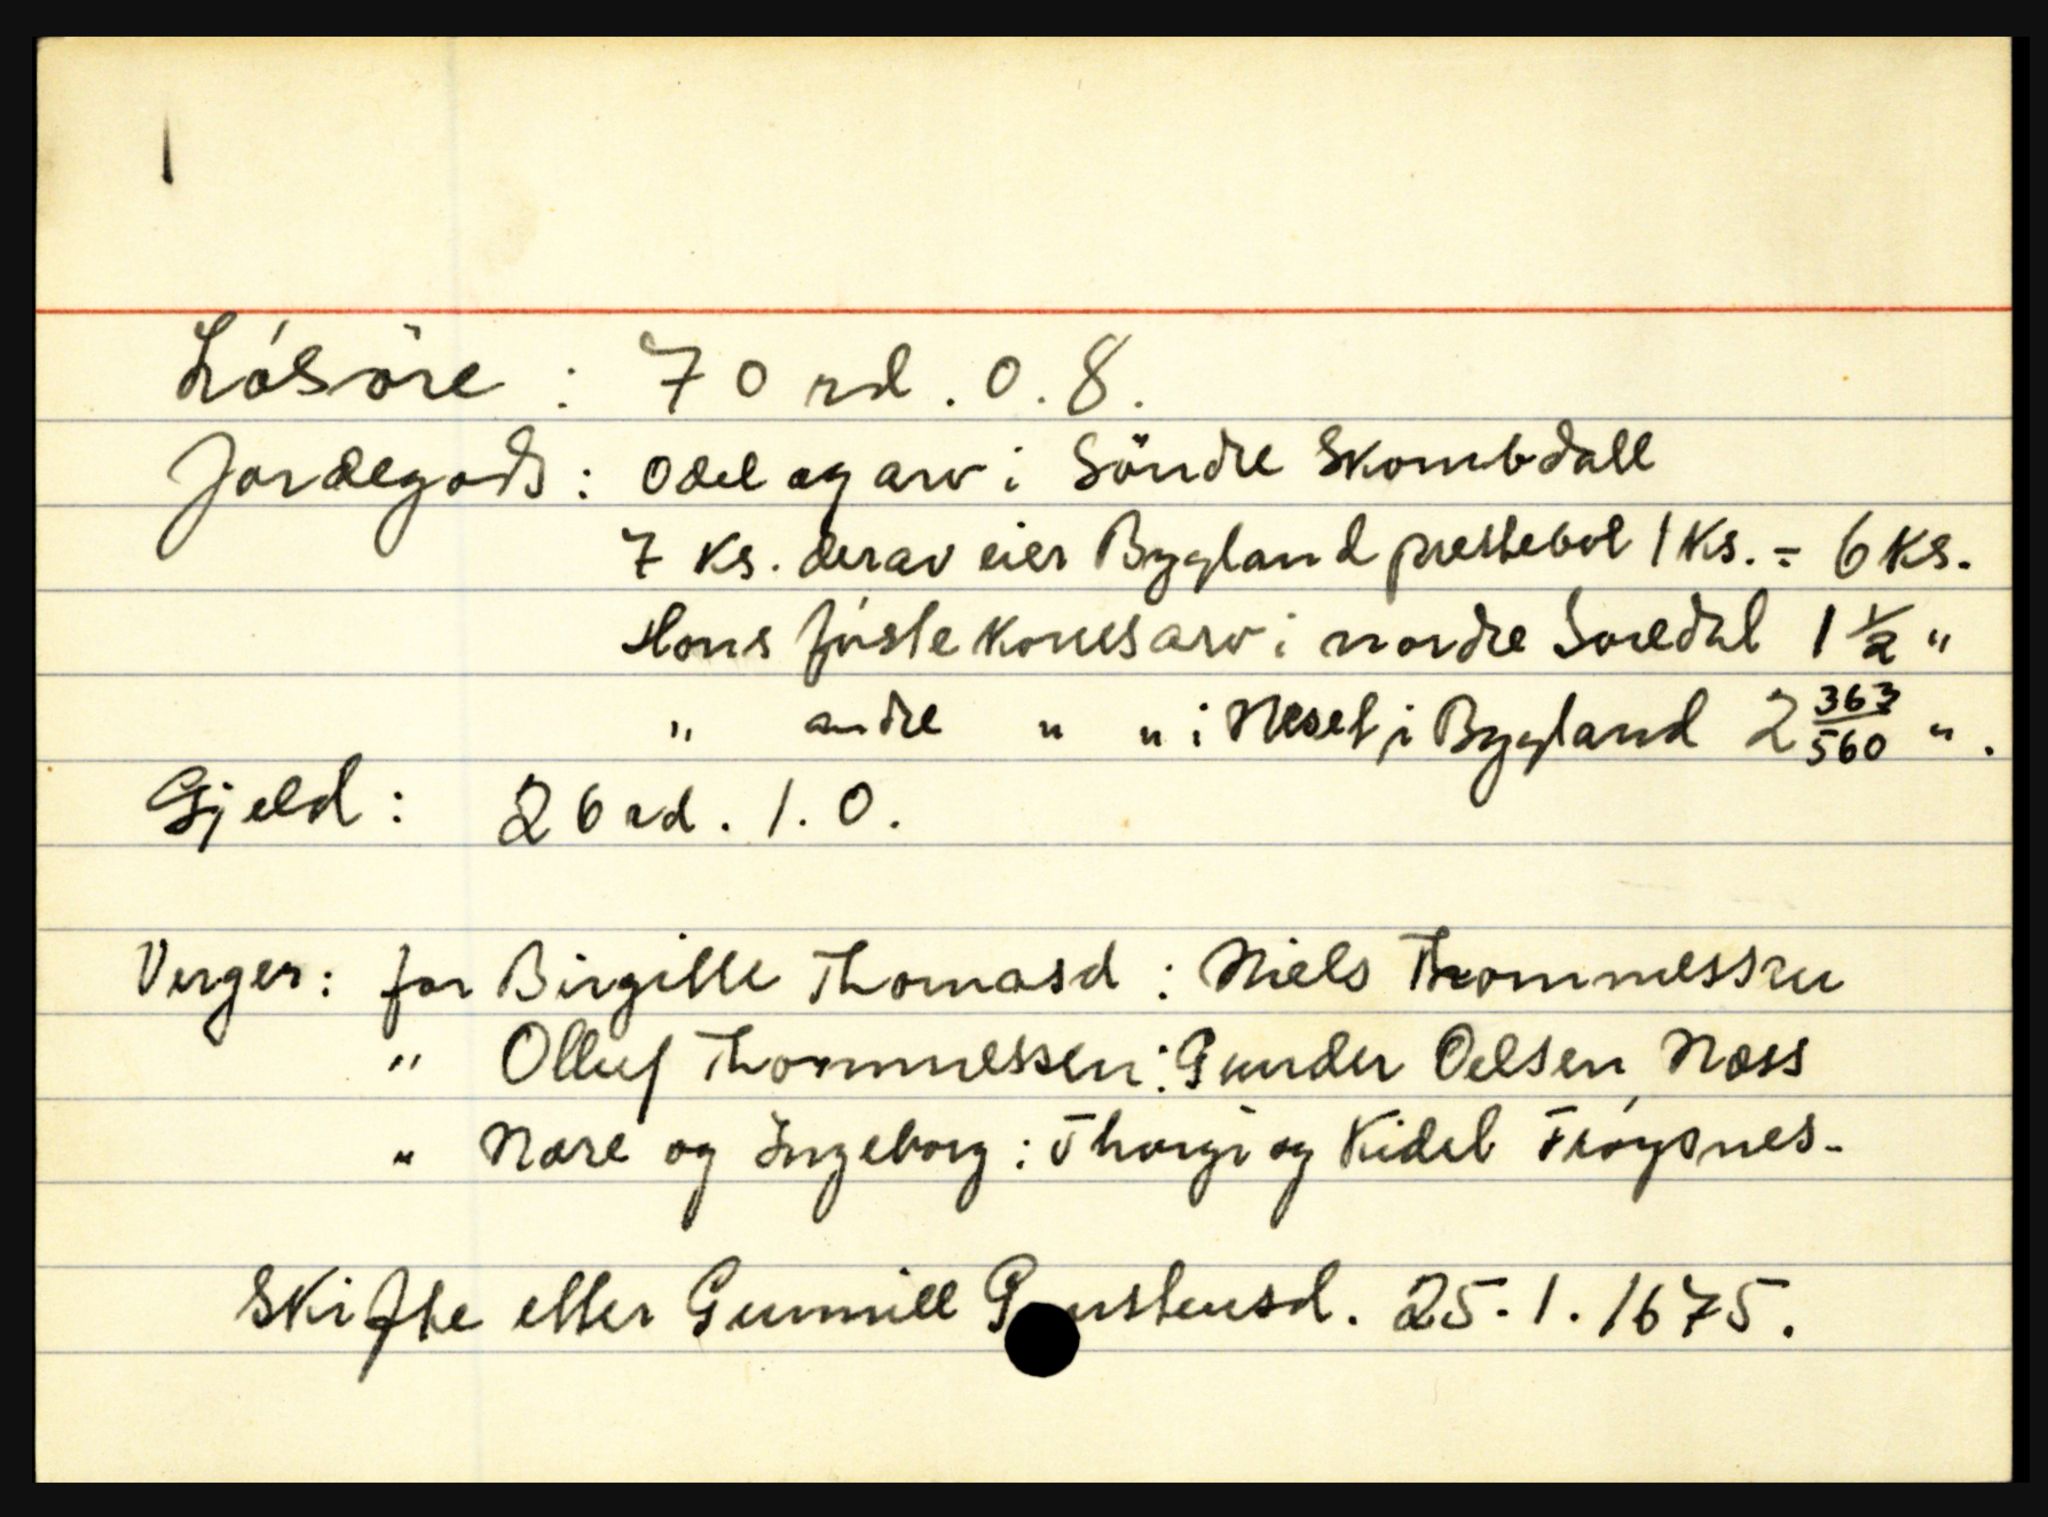 Lósöre : 70 rd. 0. 8.
Jordegods : odel og arv i Söndre Skombdall
7 ks. derav eier Bygland prestebol 1 ks. = 6 ks.
Hans fòrste kones arv i nordre Soredal 1 1/2 "
" andre " " i Neset i Bygland 2 363/560 ".
Gjeld : 26 rd. 1. 0.
Verger : for Birgitte Thomasd : Niels Thommessen
" Olluf Thommessen : Gunder Oelsen Næss
" Nare og Ingeborg : Thorgi og Kidel Fróysnes.
Skifte etter Gunnill 25. 1. 1675.